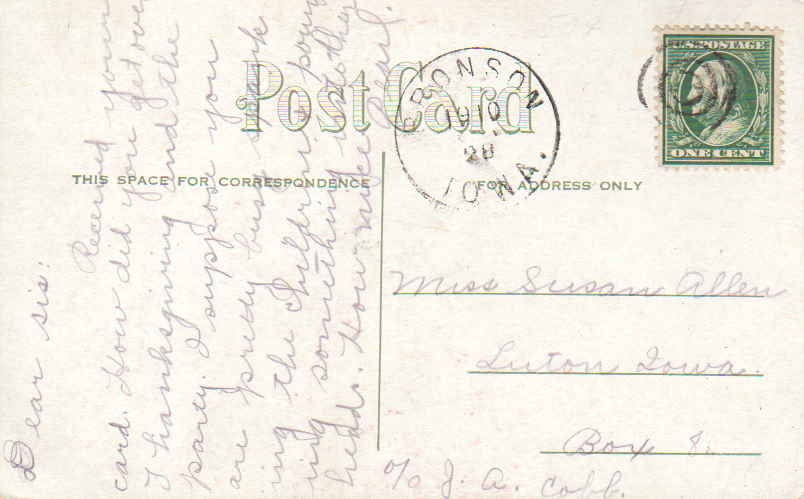 Post Card
BRONSON
1910
28
IOWA.
U.S. POSTAGE
ONE CENT
THIS SPACE FOR CORRESPONDENCE
FOR ADDRESS ONLY
Dear sis:
Received your
card. How did you get over
Thanksgiving and the
party. I suppose you
are pretty busy spank
ing the children & poun
ing something into their
heads. How nice. Pearl.
Miss Susan Allen
Luton Iowa.
Box 8.
c/o J. A. Cobb